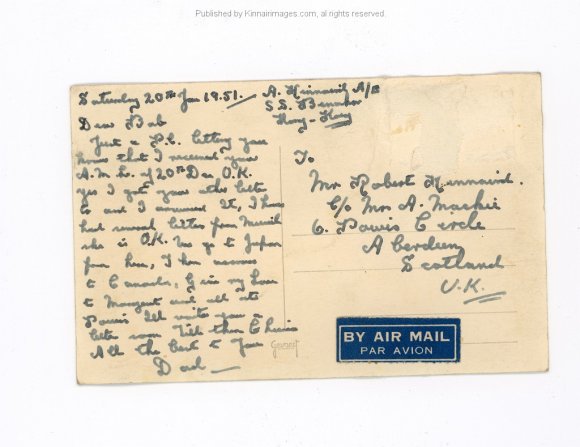 Published by Kinnairimages.com, all rights reserved.
Saturday 20TH Jan 1951.
A. Kinnaird A/B
S.S. Benavon
Hong-Kong
Dear Bob
Just a P.C. letting you
know that I received your
A.M. L. of 20TH Dec O.K.
yes I got your other letter
to and I answered it, I have
had several letters from Muriel
she is O.K. We go to Japan
from here, I hear
to Canada, Give my love
to Margaret and all at
Powis Ill write you a
letter soon Till then Cheerio
All the best to you
Dad
To
Mr Robert Kinnaird.
C/o Mrs A. Mackie
6. Powis Circle
Aberdeen
Scotland
U.K.
BY AIR MAIL
PAR AVION